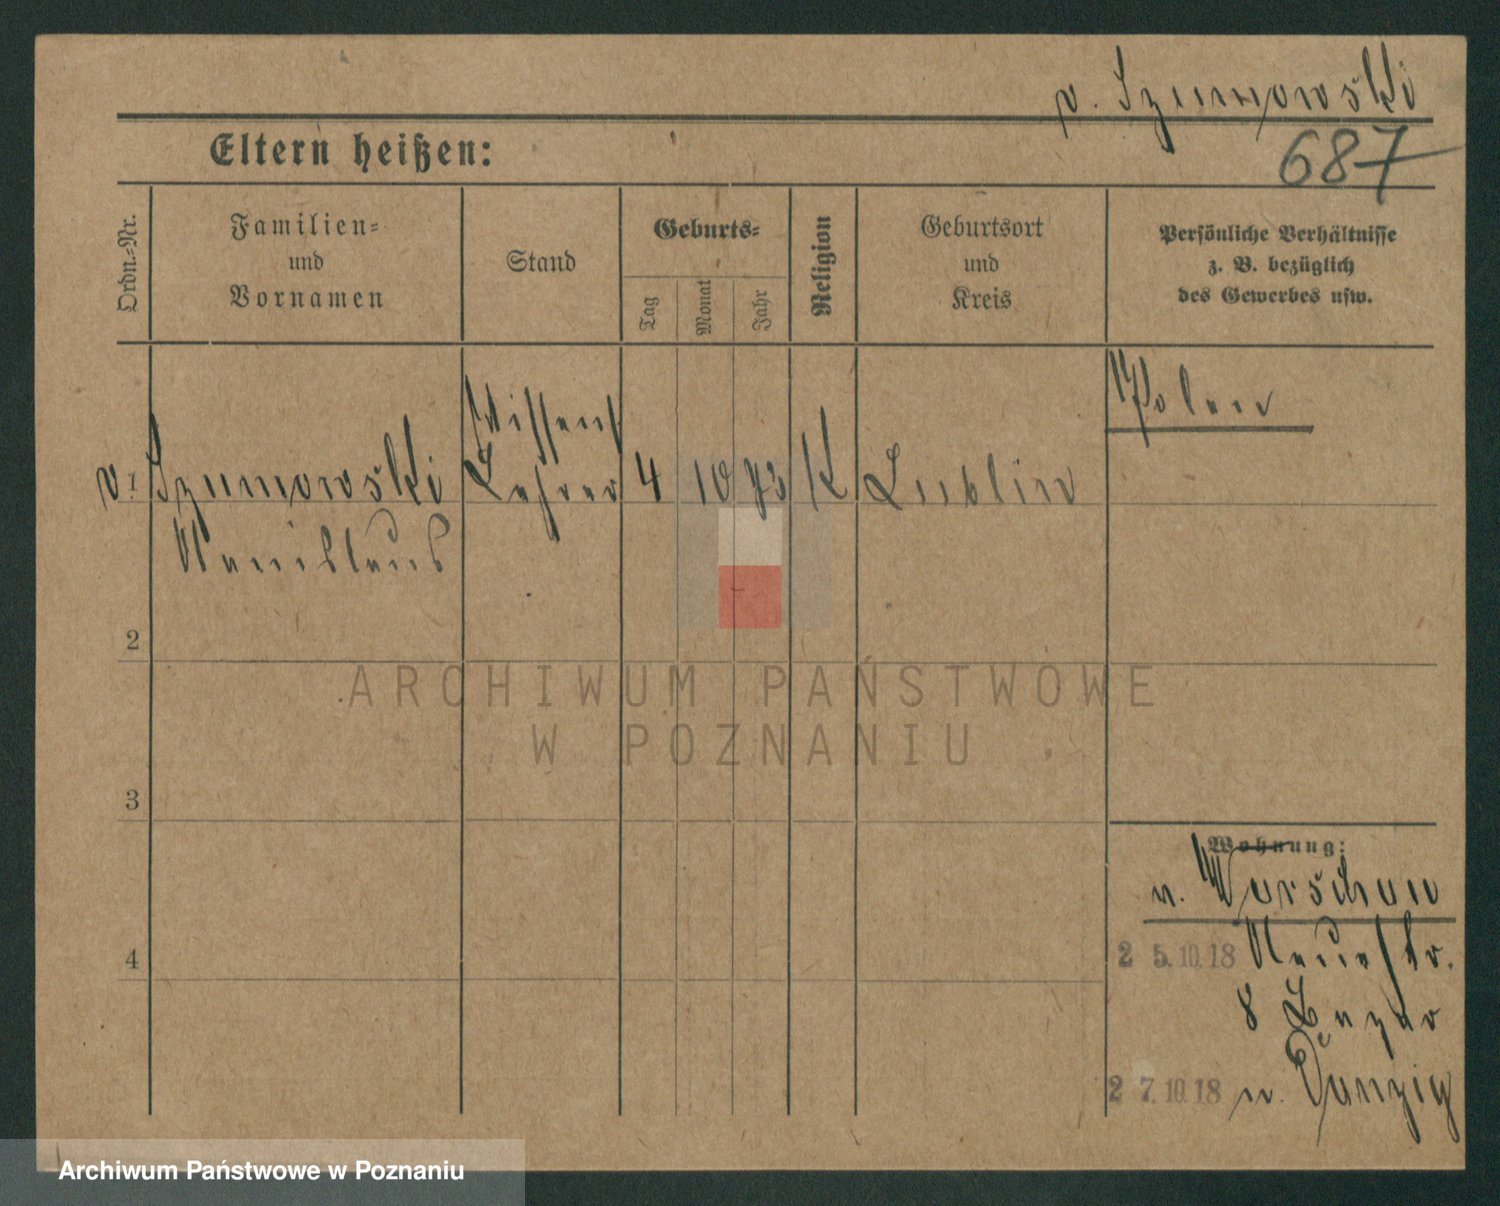 v. Szumowski
687
Eltern heißen:
Ordn.-Nr.
Familien-
und
Vornamen
Stand
Geburts-
Tag
Monat
Jahr
Religion
Geburtsort
und
Kreis
Persönliche Verhältnisse
z. B. bezüglich
des Gewerbes usw.
Polen
1
v. Szumowski
Wissensch
Lehrer
4 10 73 K Lublin
2
3
4
Wohnung:
n. Warschau
25.10.18 Neuestr.
8 Bazar
27.10.18 n. Danzig
ARCHIWUM PAŃSTWOWE
W POZNANIU
Archiwum Państwowe w Poznaniu